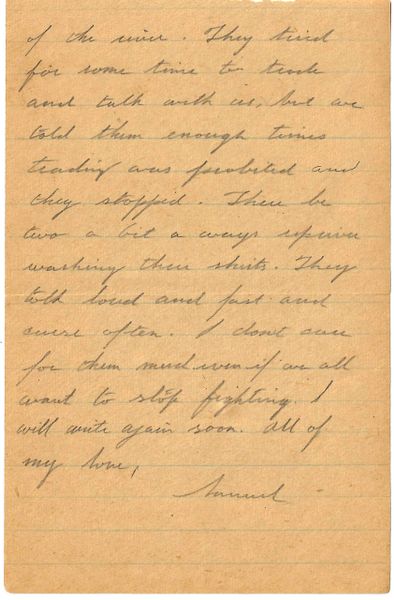 of the river. They tried
for some time to trade
and talk with us, but we
told them enough times
trading was prohibited and
they stopped. There be
two a bit a ways upriver
washing their shirts. They
talk loud and fast and
curse often. I dont care
for them much even if we all
want to stop fighting. I
will write again soon. All of
my love,
Samuel